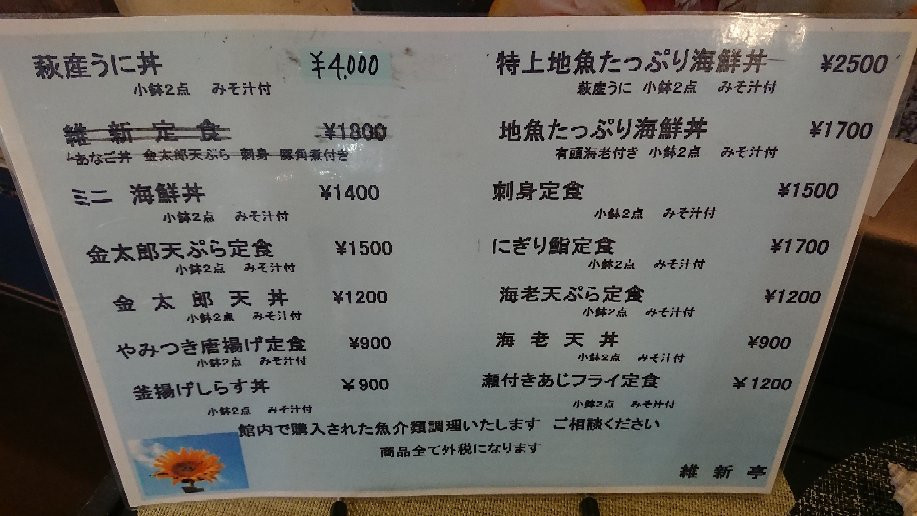 萩産うに丼 ¥4,000
小鉢2点 みそ汁付
維新定食 ¥1800
あなご丼 金太郎天ぷら 刺身 豚角煮付き
ミニ 海鮮丼 ¥1400
小鉢2点 みそ汁付
金太郎天ぷら定食 ¥1500
小鉢2点 みそ汁付
金太郎天丼 ¥1200
小鉢2点 みそ汁付
やみつき唐揚げ定食 ¥900
小鉢2点 みそ汁付
釜揚げしらす丼 ¥900
小鉢2点 みそ汁付
特上地魚たっぷり海鮮丼 ¥2500
萩産うに 小鉢2点 みそ汁付
地魚たっぷり海鮮丼 ¥1700
有頭海老付き 小鉢2点 みそ汁付
刺身定食 ¥1500
小鉢2点 みそ汁付
にぎり鮨定食 ¥1700
小鉢2点 みそ汁付
海老天ぷら定食 ¥1200
小鉢2点 みそ汁付
海老天丼 ¥900
小鉢2点 みそ汁付
瀬付きあじフライ定食 ¥1200
小鉢2点 みそ汁付
館内で購入された魚介類調理いたします ご相談ください
商品全て外税になります
維新亭